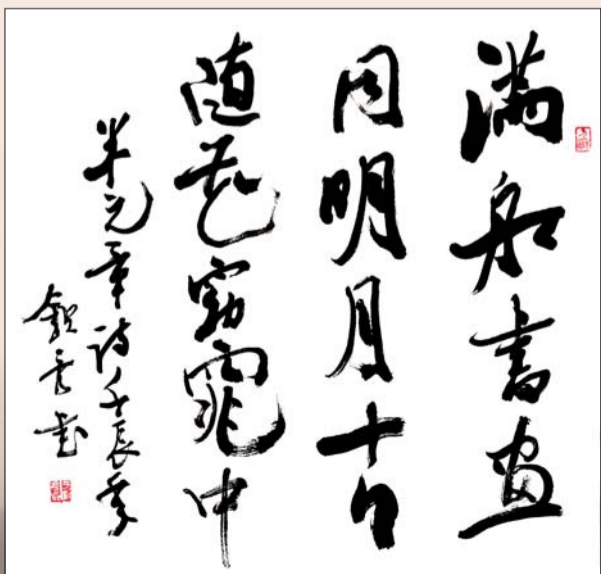 满船書画
同明月十日
随花窈窕中
米元章诗壬辰年
云书